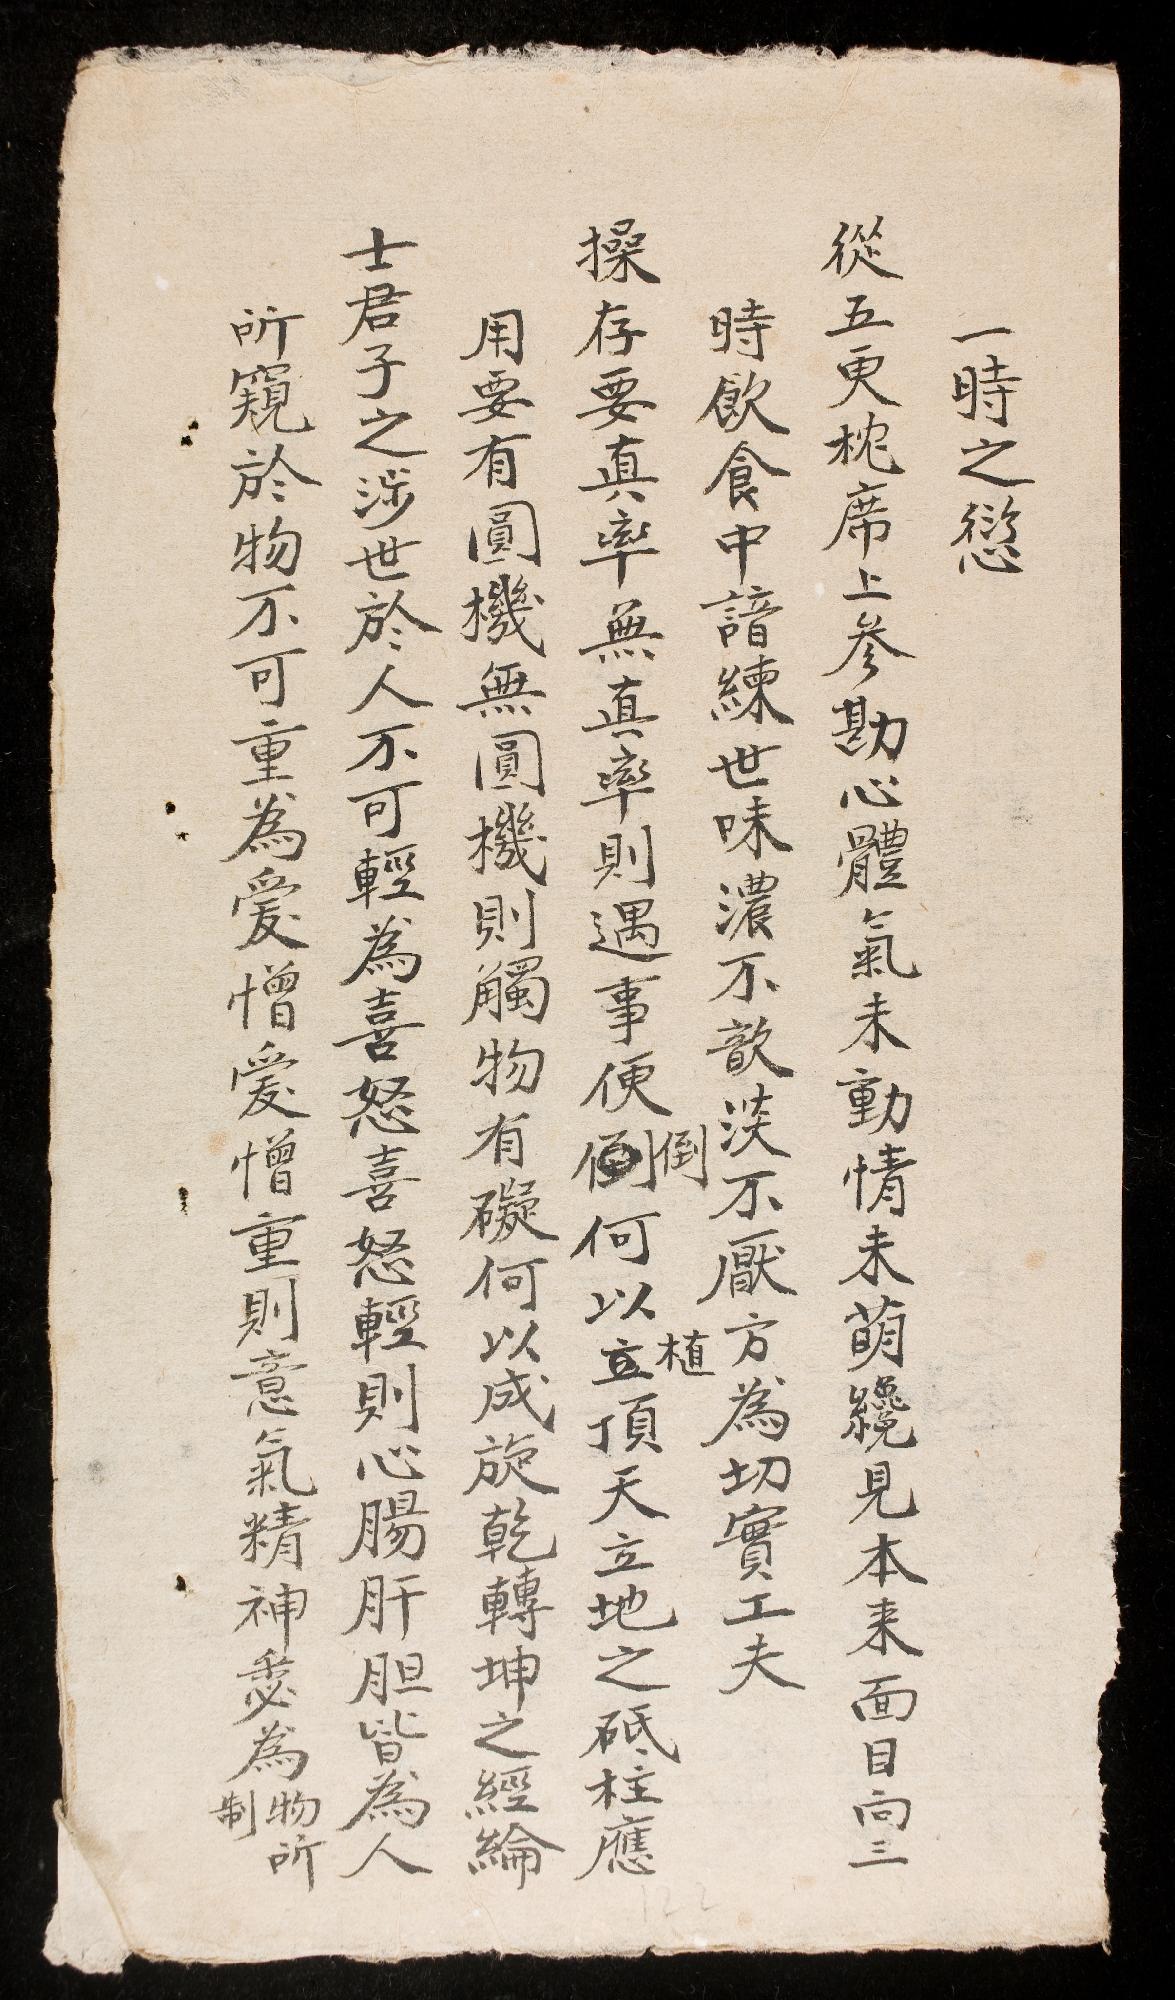 一時之愆
從五更枕席上參勘心體氣未動情未萌纔見本来面目向三
時飲食中諳練世味濃不歆淡不厭方為切實工夫
操存要真率無真率則遇事便倒何以立頂天立地之砥柱應
倒
植
用要有圓機無圓機則觸物有礙何以成旋乾轉坤之經綸
士君子之涉世於人不可輕為喜怒喜怒輕則心腸肝胆皆為人
所窺於物不可重為愛憎愛憎重則意氣精神悉為物所
制
122